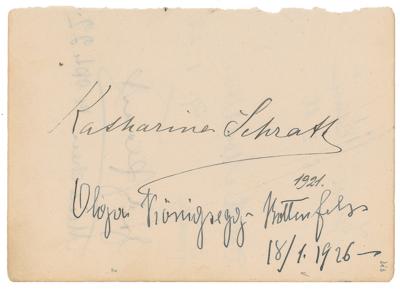 Katharina Schratt
1921.
Olga Königsegg-Rottenfels
18/1. 1926